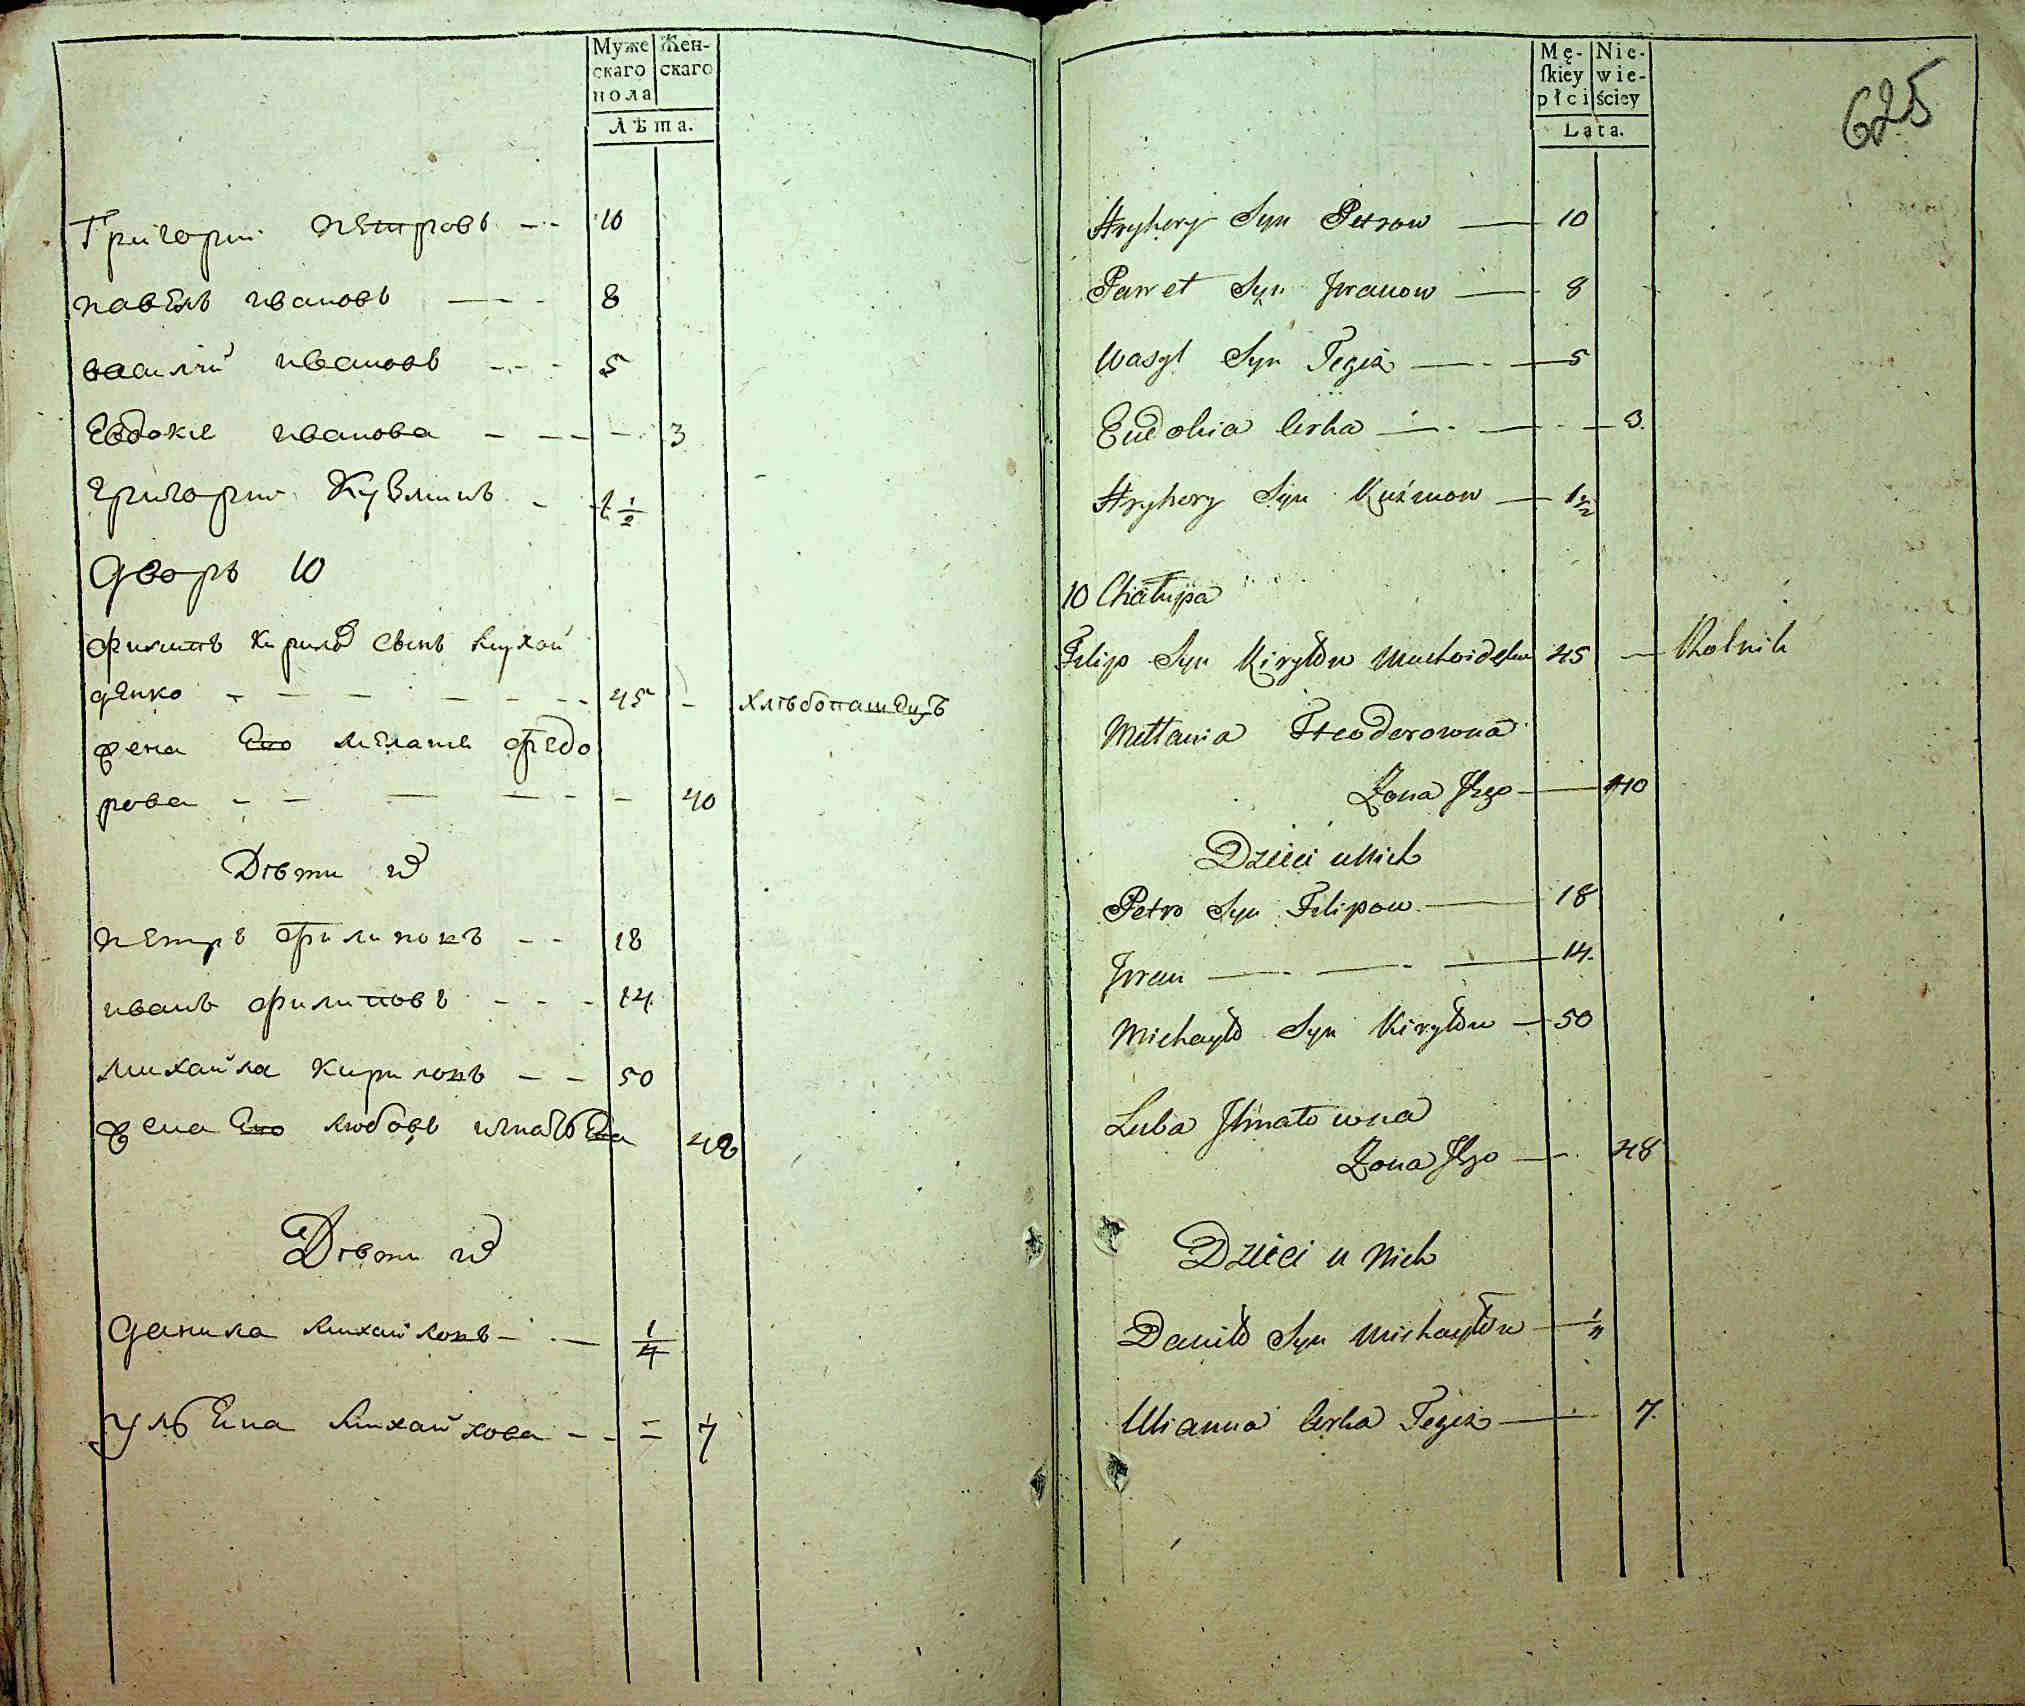 Муже
скаго
пола
Жен-
скаго
Лѣта.
Григории петровъ - - 10
павелъ ивановъ — - - 8
василий ивановъ - - - 5
Евдокие иванова - - - - 3
григории Кузминъ - 1 1/2
дворъ 10
филипъ Кирилов сынъ мухой
денко - - - - - - 45 - хлѣбопашецъ
жена Его мелание федо
рова - - — - - - 40
Дѣти их
петръ филиповъ - - 18
иванъ филиповъ - - - 14
михайла кириловъ - - 50
жена Его любовь игнатьева 48
Дѣти их
данила михайловъ - — 1/4
ульЕна михайлова - - = 7
Mę-
skiey
płci
Nie-
wie-
ściey
Lata.
625
Hryhory Syn Petrow — 10
Paweł Syn Iwanow — 8
Wasyl Syn Tegiż — - — 5
Eudokia Corka — - — - — 3.
Hryhory Syn Kuźmow — 1 1/2
10 Chałupa
Filip Syn Kiryłow Muchoideńko 45 — Rolnik
Mełania Fteodorowna
Żona Jego — 40
Dzieci u Nich
Petro Syn Filipow — 18
Iwan — - — - — 14.
Michayło Syn Kiryłow — 50
Luba Ihnatowna
Żona Jego — 48
Dzieci u Nich
Daniło Syn Michayłow — 1/4
Ulianna Corka Tegiż — 7.